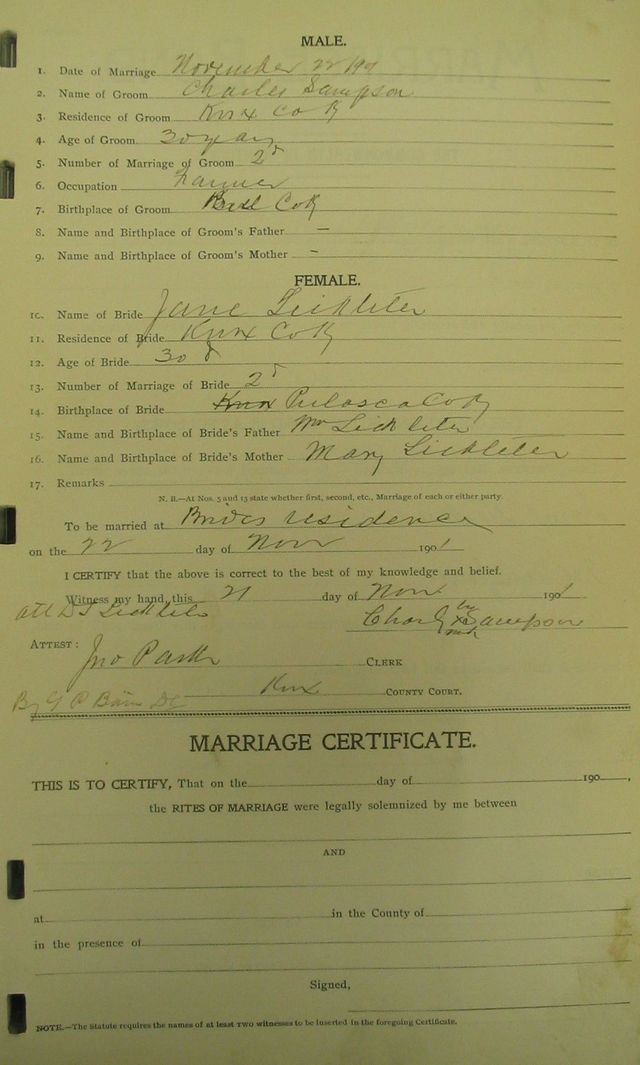 MALE.
1. Date of Marriage November 22 1901
2. Name of Groom Charles Sampson
3. Residence of Groom Knox Co K
4. Age of Groom 30 years
5. Number of Marriage of Groom 2d
6. Occupation Farmer
7. Birthplace of Groom Bell Co K
8. Name and Birthplace of Groom's Father —
9. Name and Birthplace of Groom's Mother —
FEMALE.
10. Name of Bride Jane Lickliter
11. Residence of Bride Knox Co K
12. Age of Bride 30
13. Number of Marriage of Bride 2d
14. Birthplace of Bride Knox Pulasca Co K
15. Name and Birthplace of Bride's Father Wm Lickliter
16. Name and Birthplace of Bride's Mother Mary Lickliter
17. Remarks
N. B.—At Nos. 5 and 13 state whether first, second, etc., Marriage of each or either party.
To be married at Brides residence
on the 22 day of Nov 1901
I CERTIFY that the above is correct to the best of my knowledge and belief.
Witness my hand, this 21 day of Nov 1901
Att D Lickliter
Charly x Sampson
ATTEST: Jno Parker CLERK
By G P Bain DC Knox COUNTY COURT.
MARRIAGE CERTIFICATE.
THIS IS TO CERTIFY, That on the day of 190 ,
the RITES OF MARRIAGE were legally solemnized by me between
AND
at in the County of
in the presence of
Signed,
NOTE.—The Statute requires the names of at least two witnesses to be inserted in the foregoing Certificate.